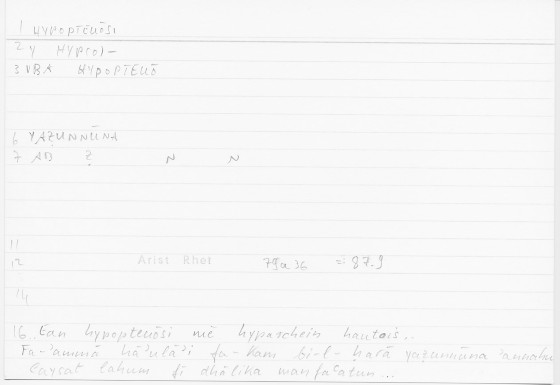 1 HYPOPTEUŌSI
2 Y HYPTO)-
3 VBA HYPOPTEUŌ
6 YAẒUNNŪNA
7 AB Ẓ N N
11
12 Arist Rhet 79a36 = 87.9
14
16 Ean hypopteuōsi mē hyparchein hautois..
Fa-'ammā hā'ulā'i fa-kam bi-l-ḥarā yaẓunnūna 'annahu
laysat lahum fī dhālika manfaʿatun...